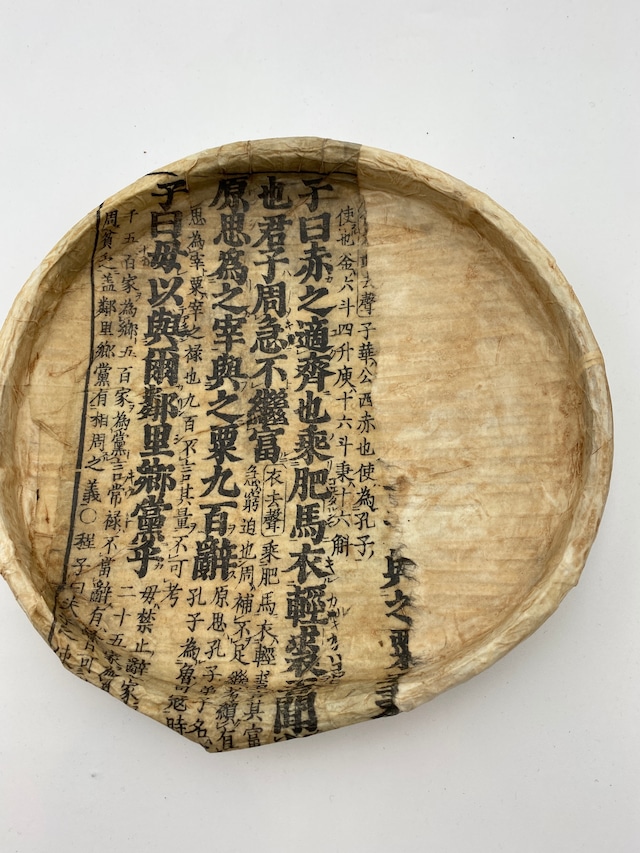 與之粟
聲子華公西赤也使為孔子
使也釜六斗四升庾十六斗秉十六斛
子曰赤之適齊也乘肥馬衣輕裘吾聞
也君子周急不繼富
衣去聲乘肥馬衣輕裘言其富
急窮迫也周補不足繼續有
原思為之宰與之粟九百辭
原思孔子弟子名
孔子為魯冦時
思為宰粟宰之祿也九百不言其量不可考
子曰毋以與爾鄰里鄉黨乎
毋禁止辭
二十五家為
千五百家為鄉五百家為黨言常祿不當辭有
周貧乏蓋鄰里鄉黨有相周之義○程子曰